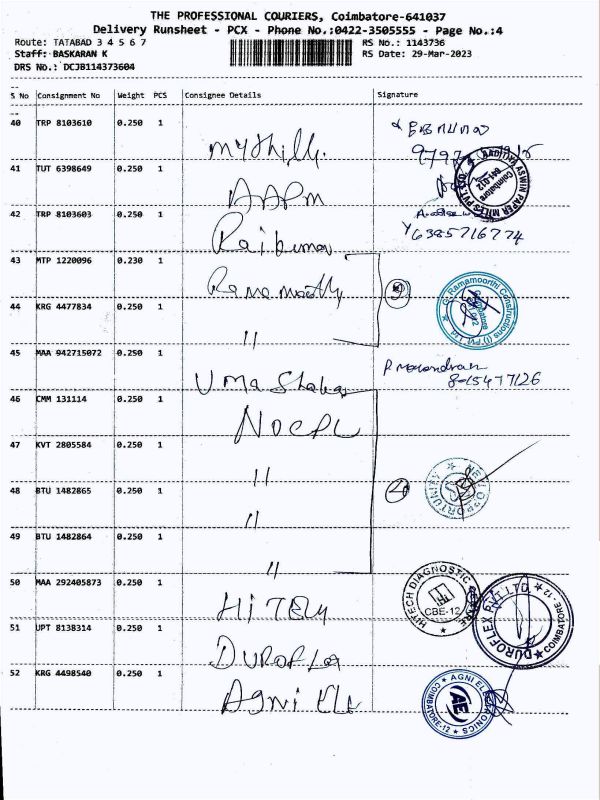 THE PROFESSIONAL COURIERS, Coimbatore-641037
Delivery Runsheet - PCX - Phone No.:0422-3505555 - Page No.:4
Route: TATABAD 3 4 5 6 7
RS No.: 1143736
Staff: BASKARAN K
RS Date: 29-Mar-2023
DRS No.: DCJB114373604
S No Consignment No Weight PCS Consignee Details Signature
40 TRP 8103610 0.250 1
41 TUT 6398649 0.250 1 AAPM
AADITHA ASWIN PAPER MILLS PVT. LTD. Coimbatore 641 012
42 TRP 8103603 0.250 1
6385716774
43 MTP 1220096 0.230 1
G. Ramamoorthi Constructions (I) Pvt. Ltd.
44 KRG 4477834 0.250 1 "
45 MAA 942715072 0.250 1 Uma
46 CMM 131114 0.250 1 NOCPL
47 KVT 2805584 0.250 1 "
48 BTU 1482865 0.250 1 "
49 BTU 1482864 0.250 1 "
50 MAA 292405873 0.250 1
HITECH DIAGNOSTIC CENTRE CBE-12
51 UPT 8138314 0.250 1
DUROFLEX PVT. LTD. COIMBATORE-12
52 KRG 4498540 0.250 1 Agni Ele
AGNI ELECTRONICS COIMBATORE-12 AE